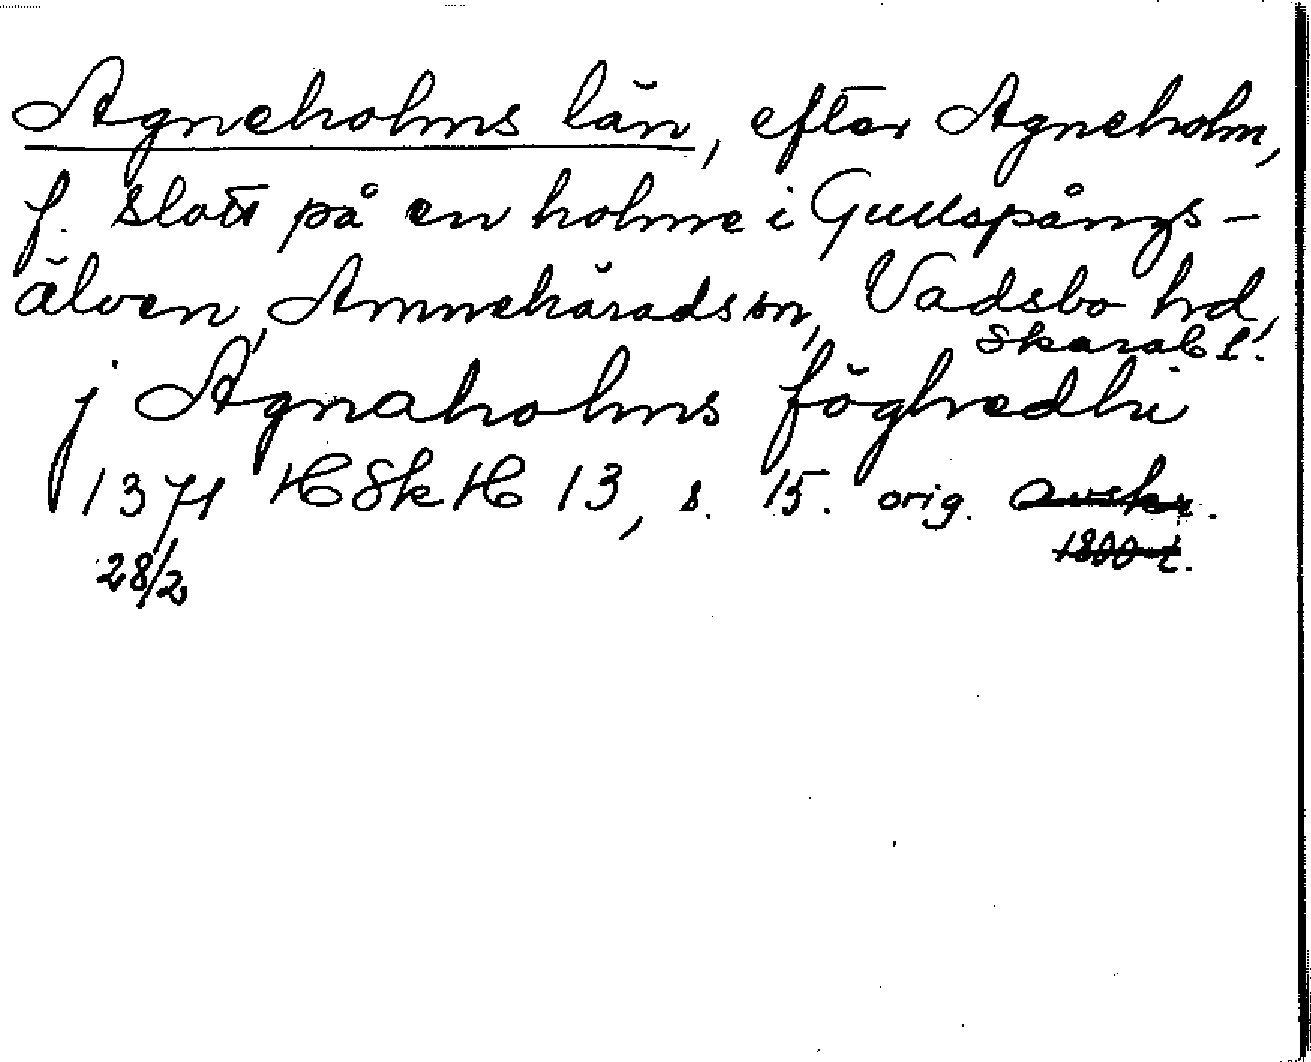 Agneholms län, efter Agneholm,
f. slott på en holme i Gullspångs-
älven, Amnehärads sn, Vadsbo hd,
Skarab. l.
j Agnaholms föghedhi
1371 HSkH 13, s. 15. orig. avskr.
28/2 1800-t.